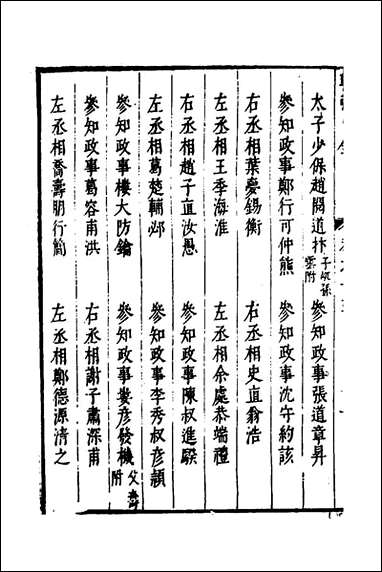 太子少保趙閱道抃 孫雲附 參知政事張道章昇
參知政事鄭行可仲熊 參知政事沈守約該
右丞相葉慶錫衡 右丞相史直翁浩
左丞相王季海淮 左丞相余處恭端禮
右丞相趙子直汝愚 參知政事陳叔進騤
左丞相葛楚輔邲 參知政事李秀叔彥穎
參知政事樓大防鑰 參知政事婁彥發機 父壽附
參知政事葛容甫洪 右丞相謝子肅深甫
左丞相喬壽朋行簡 左丞相鄭德源清之